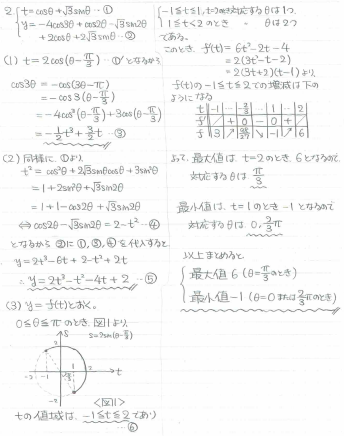 2. { t = cosθ + √3 sinθ … ①
y = -4cos3θ + cos2θ - √3 sin2θ
+ 2cosθ + 2√3 sinθ … ②
(1) t = 2cos(θ - π/3) … ①' となるから
cos3θ = -cos(3θ - π)
= -cos3(θ - π/3)
= -4cos³(θ - π/3) + 3cos(θ - π/3)
= -1/2 t³ + 3/2 t … ③
(2) 同様に、①より、
t² = cos²θ + 2√3 sinθcosθ + 3sin²θ
= 1 + 2sin²θ + √3 sin2θ
= 1 + 1 - cos2θ + √3 sin2θ
⇔ cos2θ - √3 sin2θ = 2 - t² … ④
となるから ②に①,③,④を代入すると
y = 2t³ - 6t + 2 - t² + 2t
= y = 2t³ - t² - 4t + 2 … ⑤
(3) y = f(t)とおく。
0 ≦ θ ≦ π のとき、図1より、
s = 2sin(θ - π/3)
s
t
2
-2 -1 1 2
-2
<図1>
tの値域は、-1 ≦ t ≦ 2 であり
… ⑥
{ -1 ≦ t ≦ 1, t = 2のとき対応するθは1つ,
1 ≦ t < 2 のとき 〃 θは2つ
である。
このとき、f'(t) = 6t² - 2t - 4
= 2(3t² - t - 2)
= 2(3t + 2)(t - 1) より、
f(t)の -1 ≦ t ≦ 2 での増減は下の
ようになる
t | -1 | … | -2/3 | … | 1 | … | 2
f' | | + | 0 | - | 0 | + |
f | 3 | ↗ | 98/27 | ↘ | -1 | ↗ | 6
よって、最大値は、t = 2のとき、6となるので
対応するθは、π/3
最小値は、t = 1のとき -1となるので
対応するθは 0, 2/3 π
以上まとめると、
{ 最大値 6 (θ = π/3 のとき)
最小値 -1 (θ = 0または 2/3 πのとき)